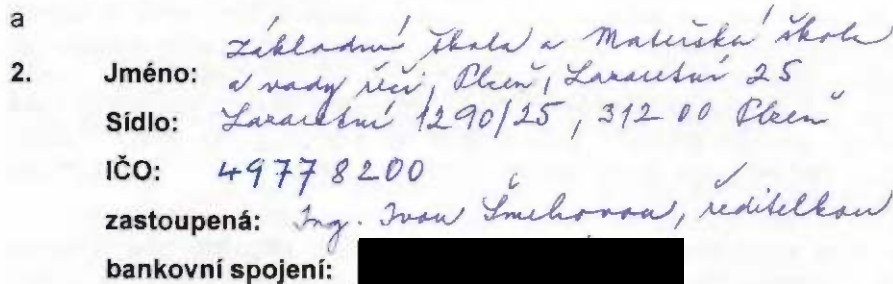 a
Základní škola a Mateřská škola
2. Jméno: a vady řeči, Plzeň, Lazaretní 25
Sídlo: Lazaretní 1290/25, 312 00 Plzeň
IČO: 49778200
zastoupená: Ing. Ivou Šmehovou, ředitelkou
bankovní spojení: